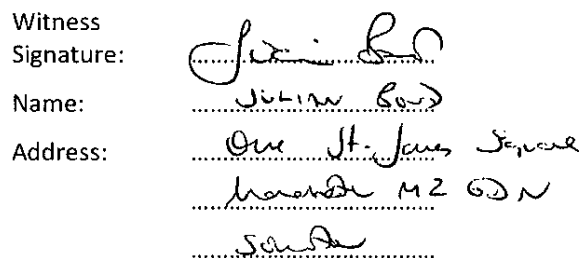 Witness
Signature:
Name: JULIAN BOND
Address: One St. James Square
Manchester M2 6DN
Solicitor